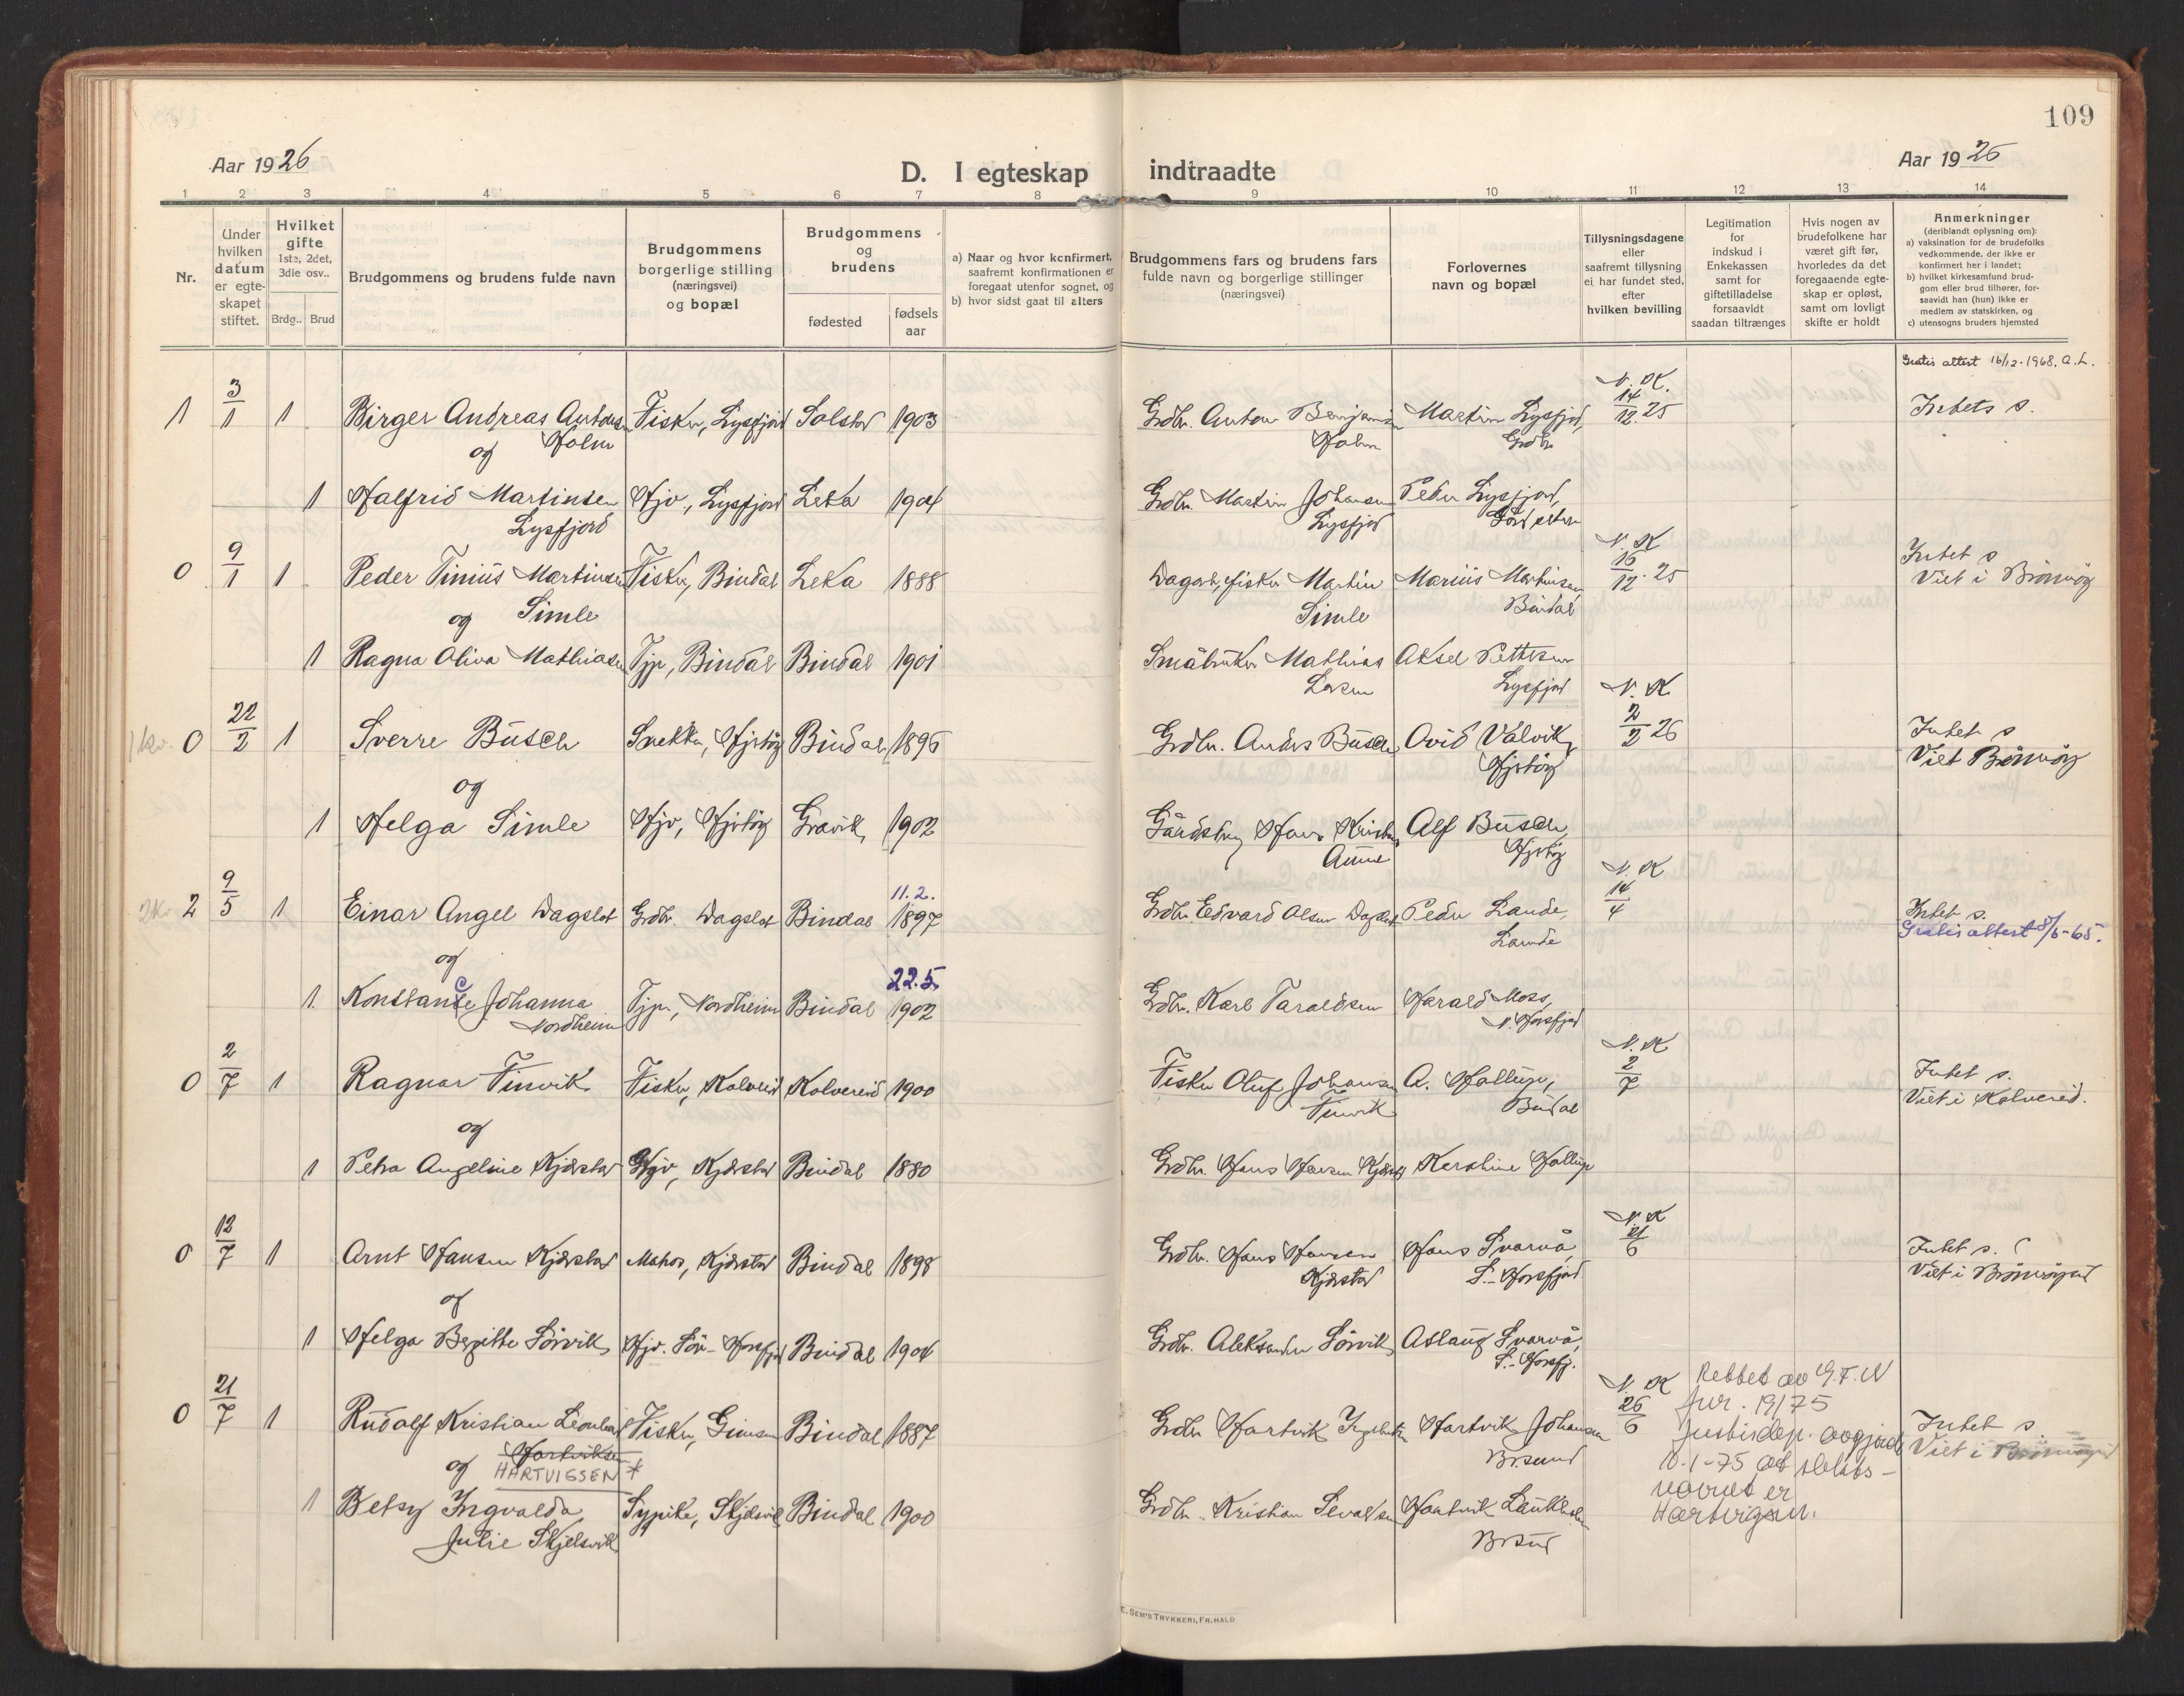 109
Aar 1926
D. I egteskap indtraadte
Aar 1926
1 2 3 4 5 6 7 8 9 10 11 12 13 14
Nr.
Under hvilken datum er egte-skapet stiftet.
Hvilket gifte 1ste, 2det, 3die osv..
Brdg.. Brud
Brudgommens og brudens fulde navn
Brudgommens borgerlige stilling (næringsvei) og bopæl
Brudgommens og brudens
fødested
fødsels aar
a) Naar og hvor konfirmert, saafremt konfirmationen er foregaat utenfor sognet, og
b) hvor sidst gaat til alters
Brudgommens fars og brudens fars fulde navn og borgerlige stillinger (næringsvei)
Forlovernes navn og bopæl
Tillysningsdagene eller saafremt tillysning ei har fundet sted, efter hvilken bevilling
Legitimation for indskud i Enkekassen samt for giftetilladelse forsaavidt saadan tiltrænges
Hvis nogen av brudefolkene har været gift før, hvorledes da det foregaaende egte-skap er opløst, samt om lovligt skifte er holdt
Anmerkninger (deriblandt oplysning om):
a) vaksination for de brudefolks vedkommende, der ikke er konfirmert her i landet;
b) hvilket kirkesamfund brud-gom eller brud tilhører, for-saavidt han (hun) ikke er medlem av statskirken, og
c) utensogns bruders hjemsted
Gratis attest 16/12-1968. A.L.
1 3/1 1 Birger Andreas Antonsen Holm Fisker, Lysfjord Solstad 1903 Grdbr. Anton Benjaminsen Holm Martin Lysfjord, Grdbr. N.K. 14/12.25 Intet s.
og
1 Halfrid Martinsen Lysfjord Hjv., Lysfjord Leka 1904 Grdbr. Martin Johansen Lysfjord Peder Lysfjord,
0 9/1 1 Peder Tinius Martinsen Simle Fisker, Bindal Leka 1888 Dagarb., fisker Martin Simle Marius Martinsen Bindal N.K. 16/12.25 Intet s Viet i Brönnöy
og
1 Ragna Oliva Mathiasen Tjp, Bindal Bindal 1901 Småbruker Mathias Larsen Aksel Pettersen Lysfjord
1kv. 0 22/2 1 Sverre Busch Snekker, Bindal 1896 Grdbr. Anders Busch Ovid Valvik, N.K 2/2 26 Intet s Viet Brönnöy
og
1 Helga Simle Hjv, Gravik 1902 Hans Kristian Aune Alf Busch,
2Kv 2 9/5 1 Einar Angel Dagslot Grdbr. Dagslot Bindal 11.2. 1897 Grdbr. Edvard Olsen Dagslot Peder Lande, Lande N.K 14/4 Intet s. Gratis attest 5/5-65.
og
1 Konstance Johanna Nordheim Tjp., Nordheim Bindal 22.5. 1902 Grdbr. Karl Taraldsen Harald Moss, N. Horsfjord
0 2/7 1 Ragnar Finvik Fisker, Kolvereid Kolvereid 1900 Fisker Oluf Johansen Finvik A. Bindal N.K 2/7 Intet s. Viet i Kolvereid.
og
1 Petra Angeline Kjærstad Hjv, Kjærstad Bindal 1880 Grdbr. Hans Hansen Kjærstad
0 12/7 1 Arnt Hansen Kjærstad Matros, Kjærstad Bindal 1898 Grdbr. Hans Hansen Kjærstad Hans Svarvå, S.-Horsfjord N.K 21/6 Intet s. Viet i Brönnöysund
og
1 Helga Bergitte Sörvik Hjv. Sör-Horsfjord Bindal 1904 Grdbr. Aleksander Sörvik Aslaug Svarvå, S.-Horsfj.
0 21/7 1 Rudolf Kristian Leonhard Hartviksen HARTVIGSSEN * Fisker, Bindal 1887 Grdbr. Hartvik Hartvik Johansen Br.sund N.K 26/6 Rettet av G.F.N jur. 19/75 Justisdep. avgjort 10-1-75 at slekts-navnet er Hartvigsen. Intet s. Viet i Brönnöysund
og
1 Betsy Ingvalda Julie Skjelsvik Sypike, Skjelsvik Bindal 1900 Grdbr. Kristian Sevaldsen Br.sund
E. SEM'S TRYKKERI, FR.HALD